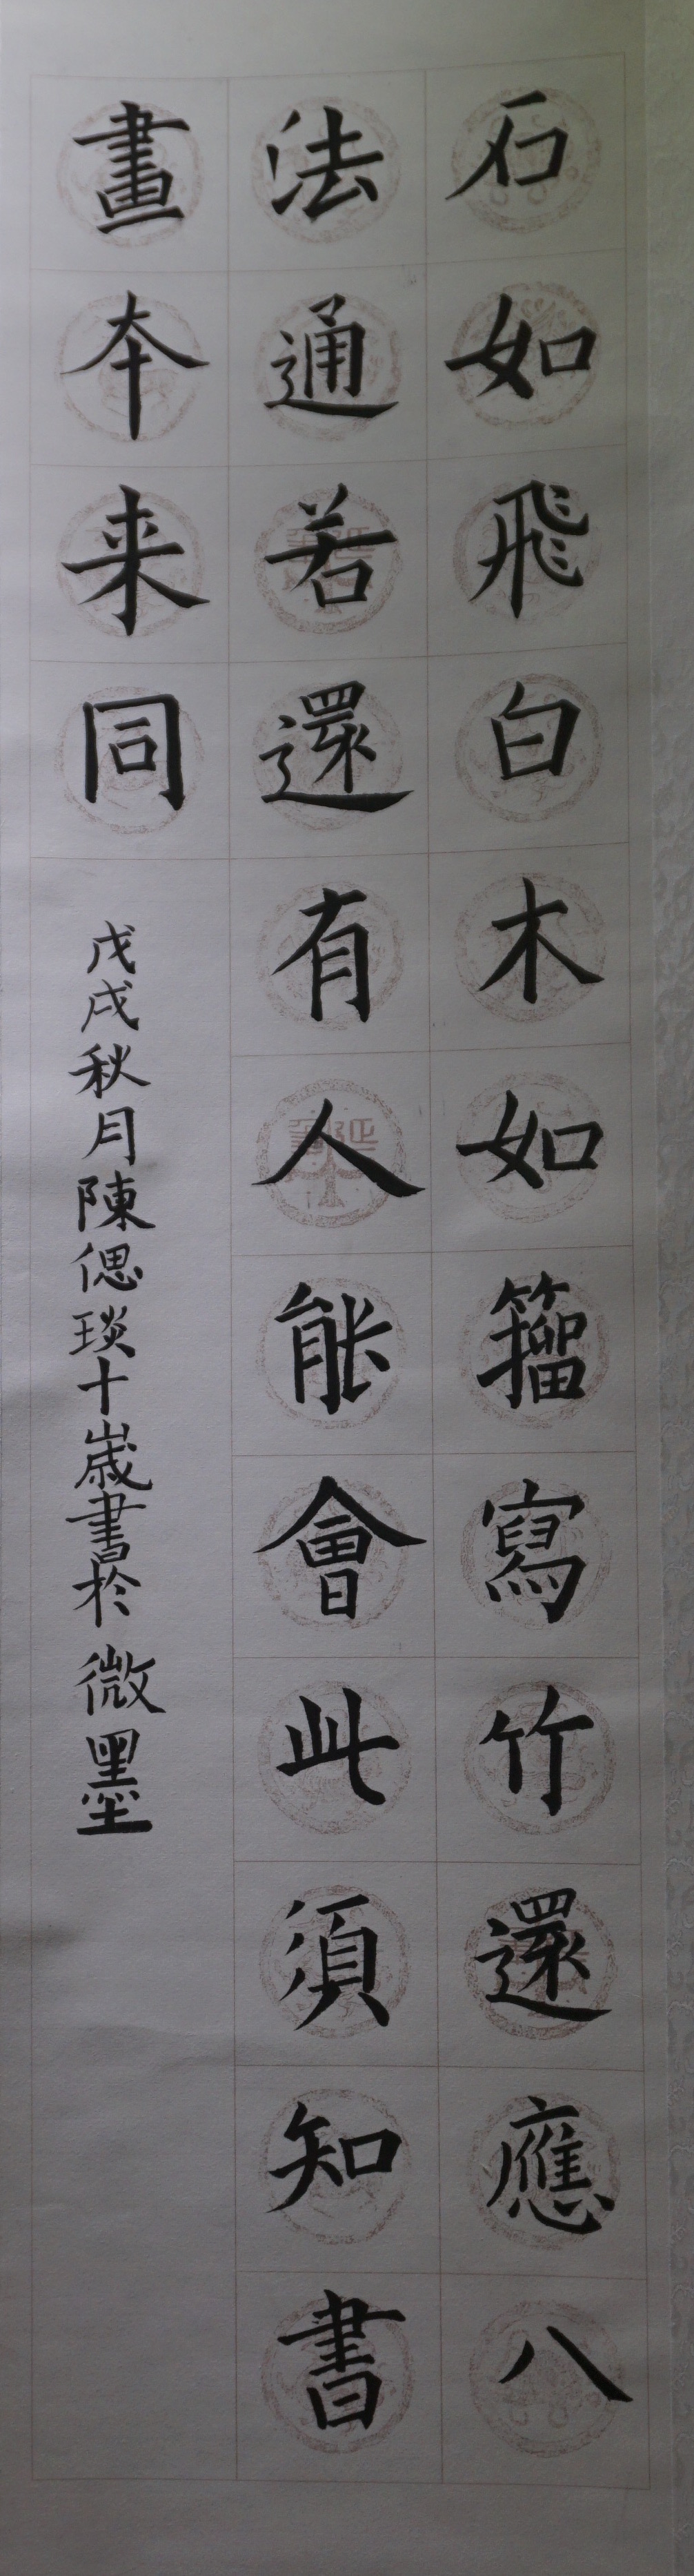 石如飛白木如籀寫竹還應八
法通若還有人能會此須知書
畫本来同
戊戌秋月陳偲琰十歲書於微墨